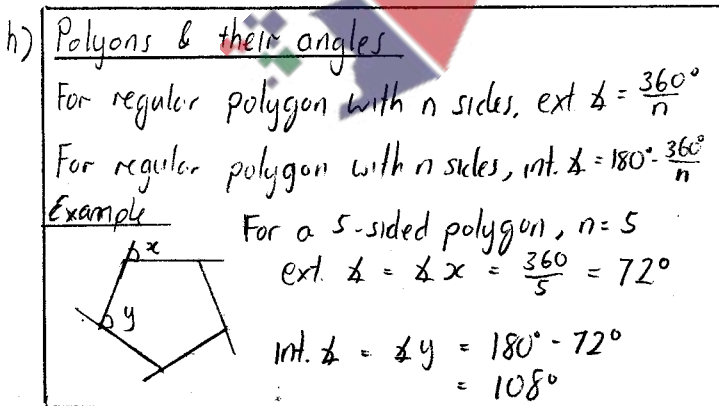 h) Polyons & their angles
For regular polygon with n sides, ext ∡ = 360°/n
For regular polygon with n sides, int. ∡ = 180° - 360°/n
Example
For a 5-sided polygon, n = 5
x
ext. ∡ = ∡ x = 360/5 = 72°
y
int. ∡ = ∡ y = 180° - 72°
= 108°